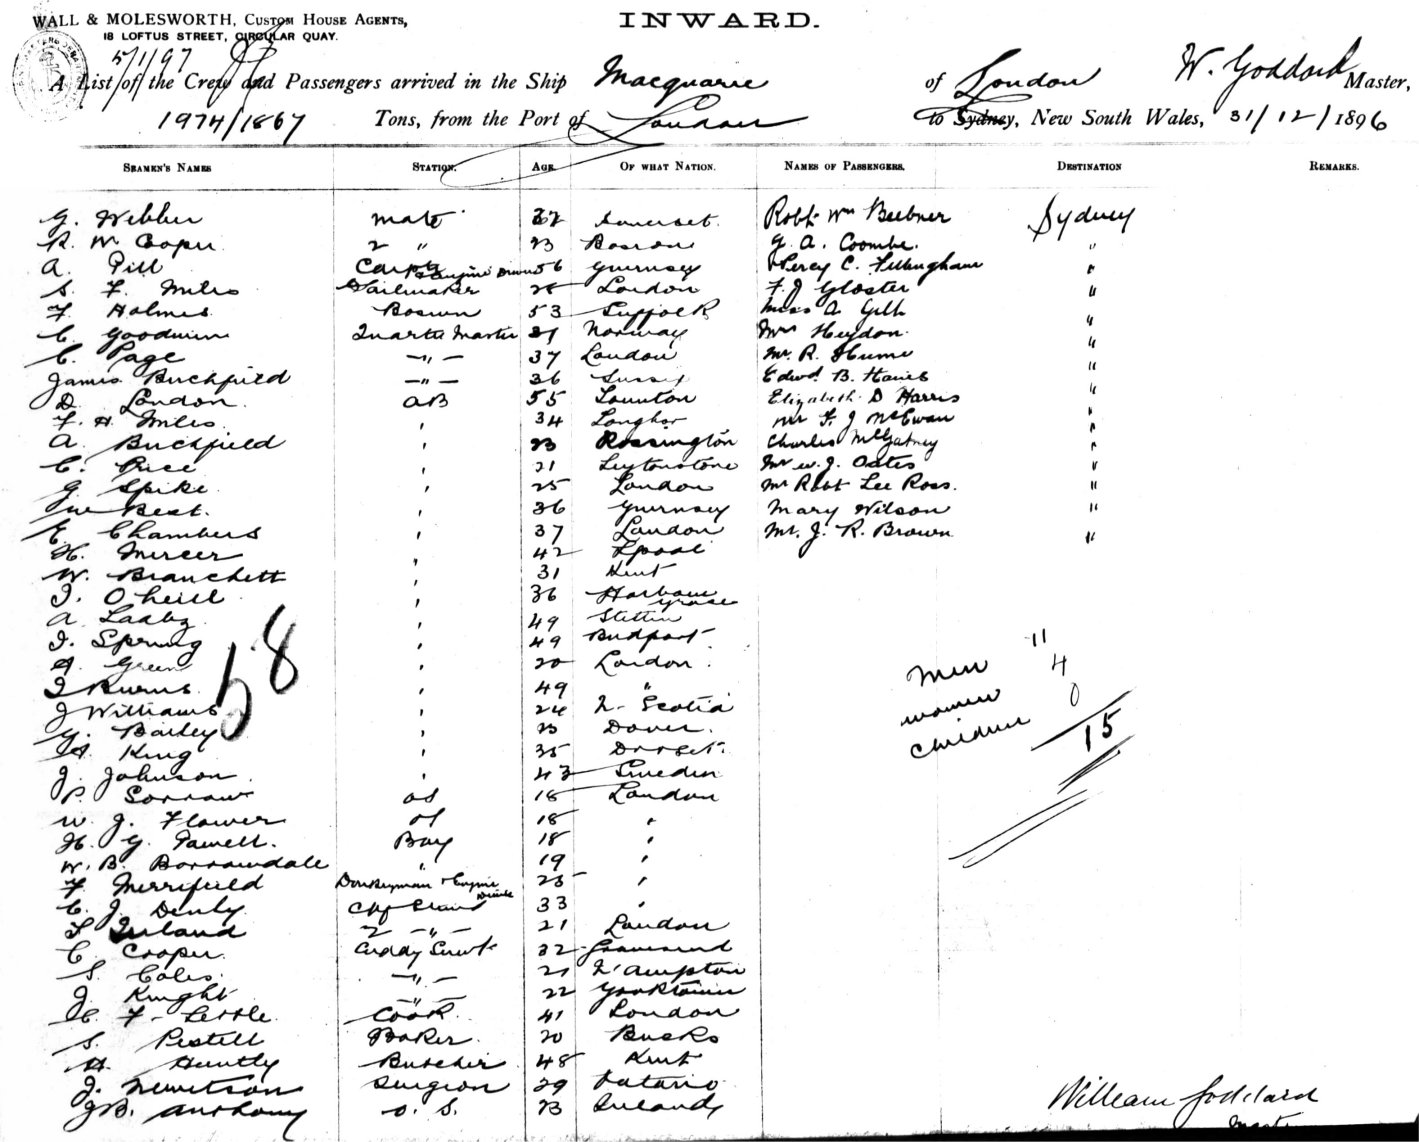 WALL & MOLESWORTH, CUSTOM HOUSE AGENTS,
18 LOFTUS STREET, CIRCULAR QUAY.
INWARD.
5/1/97
A List of the Crew and Passengers arrived in the Ship Macquarie of London W. Goddard Master,
1974/1867 Tons, from the Port of London to Sydney, New South Wales, 31/12/1896
SEAMEN'S NAMES STATION. AGE OF WHAT NATION. NAMES OF PASSENGERS. DESTINATION REMARKS.
G. Webber Mate 32 Somerset. Robt Wm Beebner Sydney
R. W. Cooper 2 " 23 G. A. Coombe. "
A. Pill Carptr & Engine Driver 56 Guernsey Percy C. Fillingham "
S. F. Miles Sailmaker 28 London F. J Gloster "
F. Holmes Bosun 53 Suffolk Miss A Gill "
C. Goodwin Quarter Master 31 Norway Mrs Heydon "
C. Page — " — 37 London Mr. R. Hume "
James Burchfield — " — 36 Sussex Edwd. B. Haines "
D. London AB 55 Taunton Elizabeth D Harris "
F. H. Miles ' 34 Mr F. J McEwan "
A. Burchfield ' 23 Rossington Charles McGatney "
C. Price ' 21 Leytonstone Mr W. J. Oates "
G. Spike ' 25 London Mr Robt Lee Ross. "
W Best. 36 Guernsey Mary Wilson "
E. Chambers ' 37 London Mr. J. R. Brown "
H. Mercer ' 42 Lpool
W. Branchett ' 31 Kent
J. O'Neill ' 36 Harbour Grace
A Ladbz ' 49 Stettin
J. Spring ' 49 Bridport
A. Green ' 20 London
J Burns ' 49 "
J Williams ' 24 N. Scotia
G. Bailey ' 23 Dover.
A. King ' 35 Dorset.
J. Johnson ' 43 Sweden
P. Sorrow OS 18 London
W. J. Flower OS 18 '
H. G. Fawell. Boy 18 '
W. B. Borrowdale " 19 '
F. Merrifield Donkeyman & Engine Driver 25 '
C. J. Denly Chf Steward 33 '
T Ireland 2 — " — 21 London
C. Cooper Cuddy Servt 32 Gravesend
S. Coles — " — 21 N'ampton
J. Knight — " — 22 Yorktown
H. F. Settle Cook 41 London
S. Pestell Baker 20 Bucks
H. Huntly Butcher 48 Kent
J. Newitson Surgeon 29 Ontario
J B. Anthony O. S. 23 Ireland
58
Men 11
Women 4
Children 0
15
William Goddard
Master